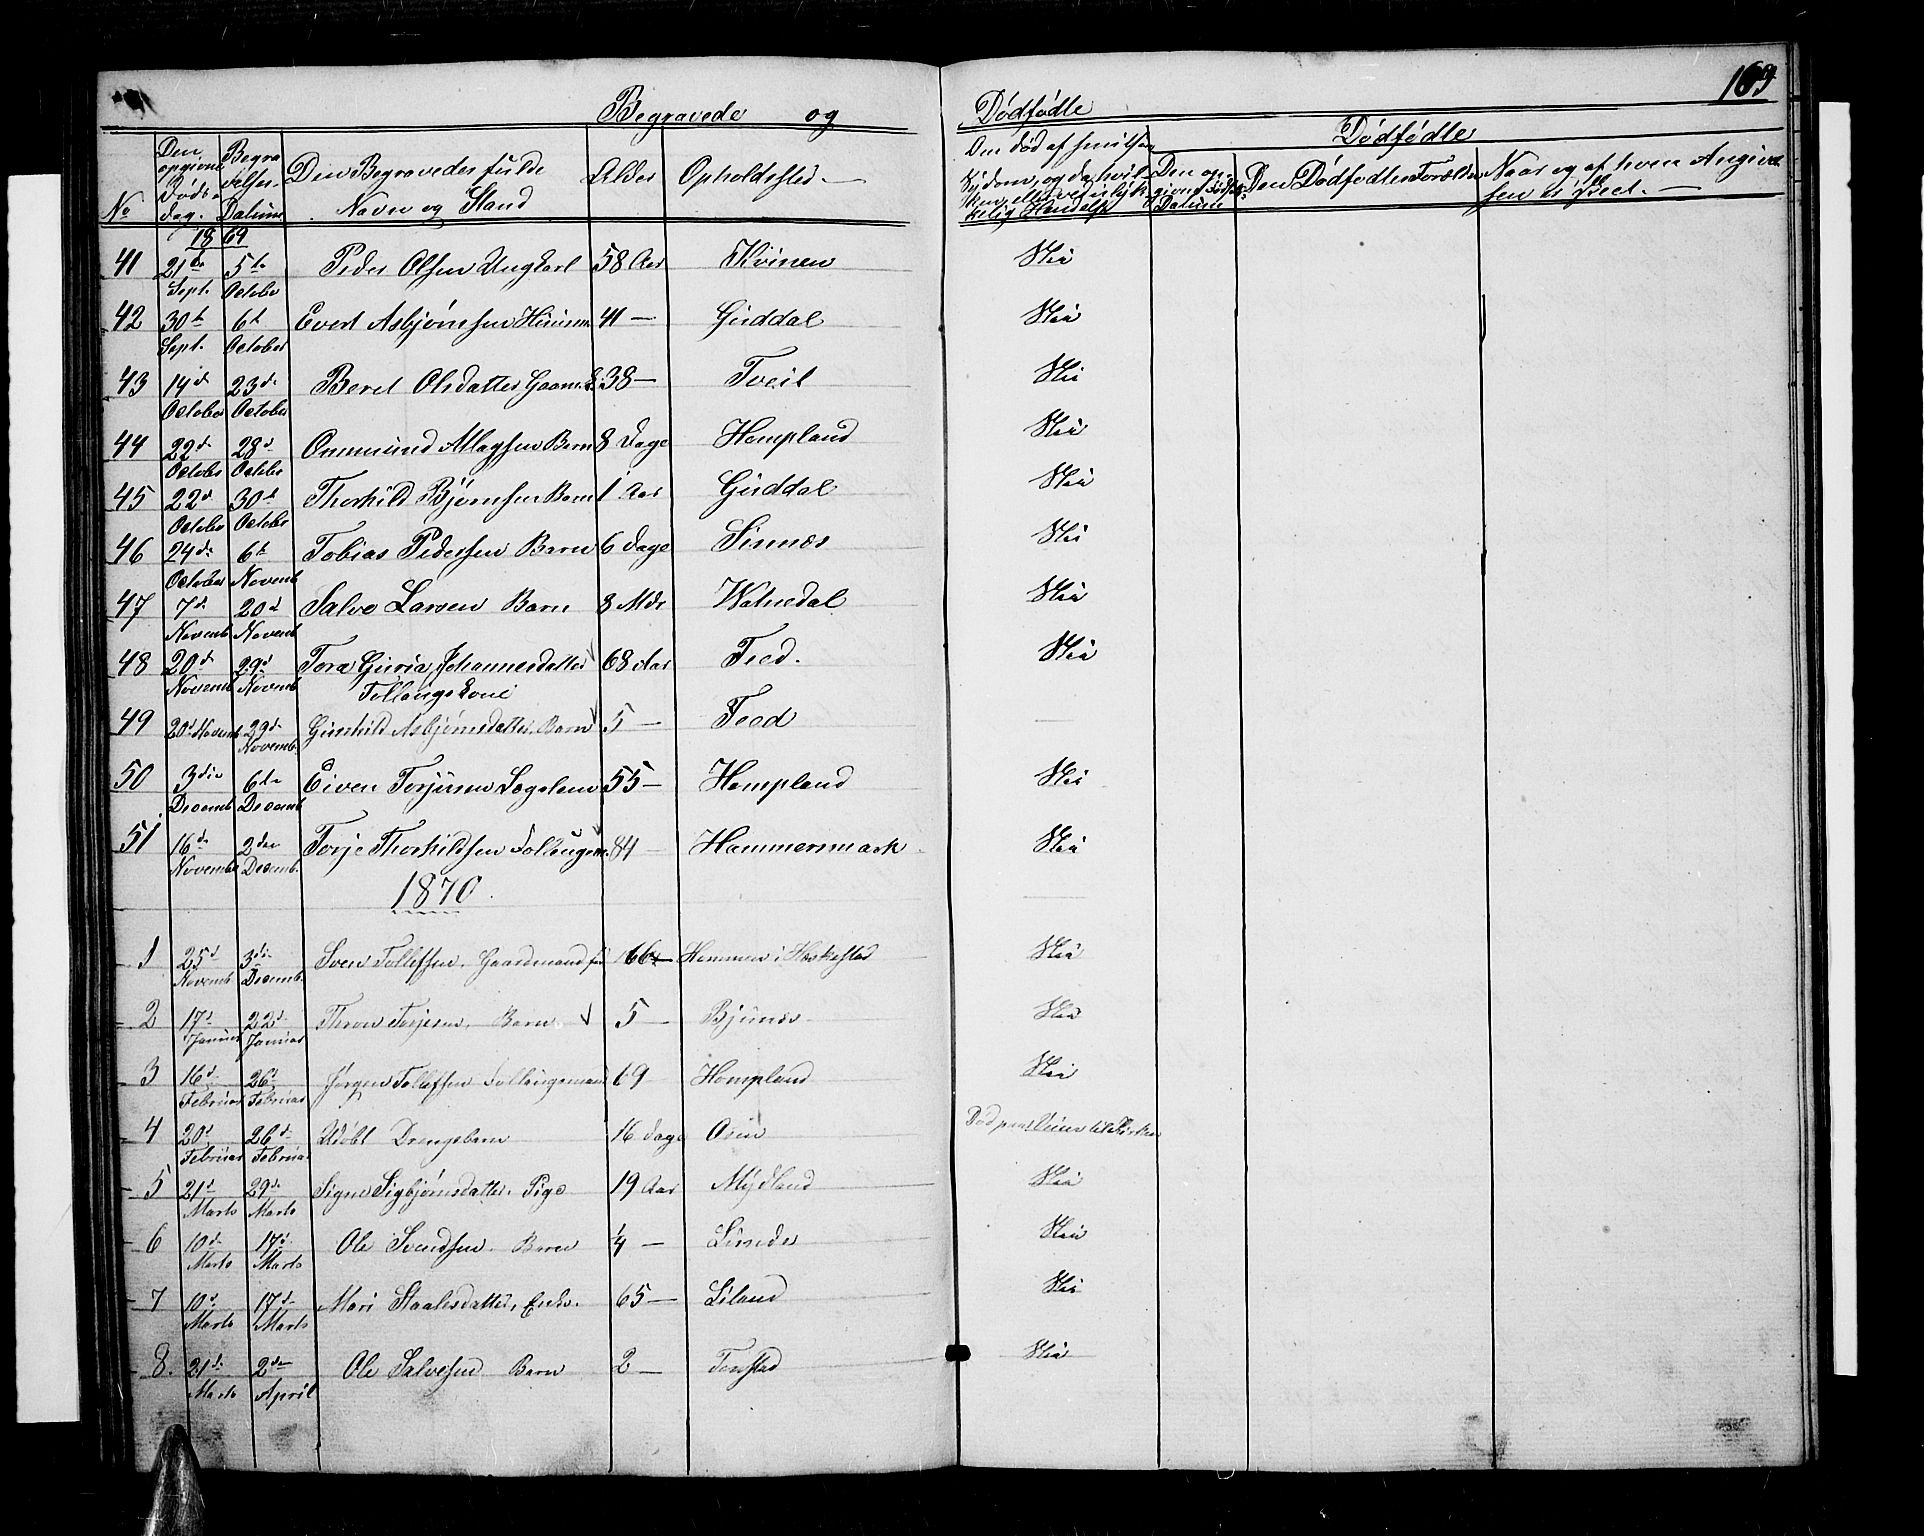 Begravede og Dødfødte
Dødfødte
No
Den opgivne Døds-dag.
Begravelses-Datum
Den Begravedes fulde Navn og Stand
Alder
Opholdssted.
Den Dødfødtes Forældre
Naar og af hvem Angivelsen er skeet.
1869
41 21de Sept. 5te October Peder Olsen Ungkarl 58 Aar Kvinen Nei
42 30t Sept. 6t October Evert Asbjørnsen 41 — Girddal Nei
43 14d October 23de October Beret Olsdatter 38 — Tveit Nei
44 22d October 28d October Onnmund Atlagsen Barn 8 Dage Hompland Nei
45 22d October 30t October Thorkild Bjørnsen Barn 1 Aar Girddal Nei
46 24de October 6t Novemb Tobias Pedersen Barn 6 Dage Sinnæs Nei
47 7d Novemb 20d Novemb Salve Larsen Barn 8 Mdr Watnedal Nei
48 20d Novemb 29d Novemb Tora Guria Johannesdatter 68 Aar Fred. Nei
Follaugskone
49 20d Novemb 29de Novemb. Gunhild Asbjørnsdatter. Barn 5 — Feed —
50 3die Decemb 6te Decemb Eiven Torjusen Lægslem 55 — Hompland Nei
51 16de Novemb 2den Decemb. Torje Thorkildsen Follaugsm. 84 — Hammersmark Nei
1870.
1 25d Novemb 3die Decemb. Sven Tollefsen. Gaardmand 66 — Hommen i Heskestad Nei
2 17d Januar 22d Januar Thron Torjesen. Barn 5 — Bjunes Nei
3 16d Februar 26d Februar Jørgen Tollefsen Follaugsmand 69 Hompland Nei
4 20d Februar 26d Februar Udøbt Drengebarn 16 Dage Osen
5 21d Marts 29de Marts Signe Sigbjørnsdatter. Pige 19 Aar Mydland Nei
6 10d Marts 17d Marts Ole Svendsen. Barn 1/4 — Lunde Nei
7 10d Marts 17d Marts Mari Staalesdatter, Enke. 65 — Liland Nei
8. 21d Marts 2den April Ole Salvesen Barn 2 — Tonstad Nei